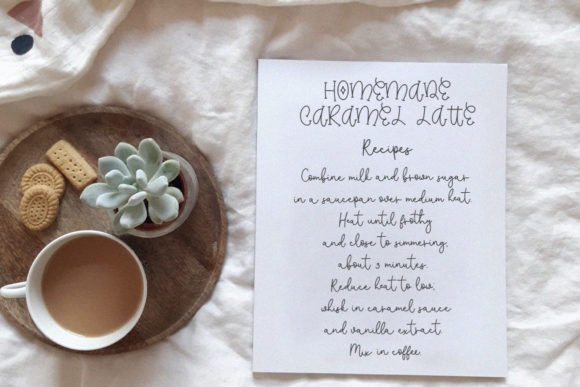 HOMEMADE
CARAMEL LATTE
Recipes
Combine milk and brown sugar
in a saucepan over medium heat.
Heat until frothy
and close to simmering,
about 3 minutes.
Reduce heat to low;
whisk in caramel sauce
and vanilla extract.
Mix in coffee.